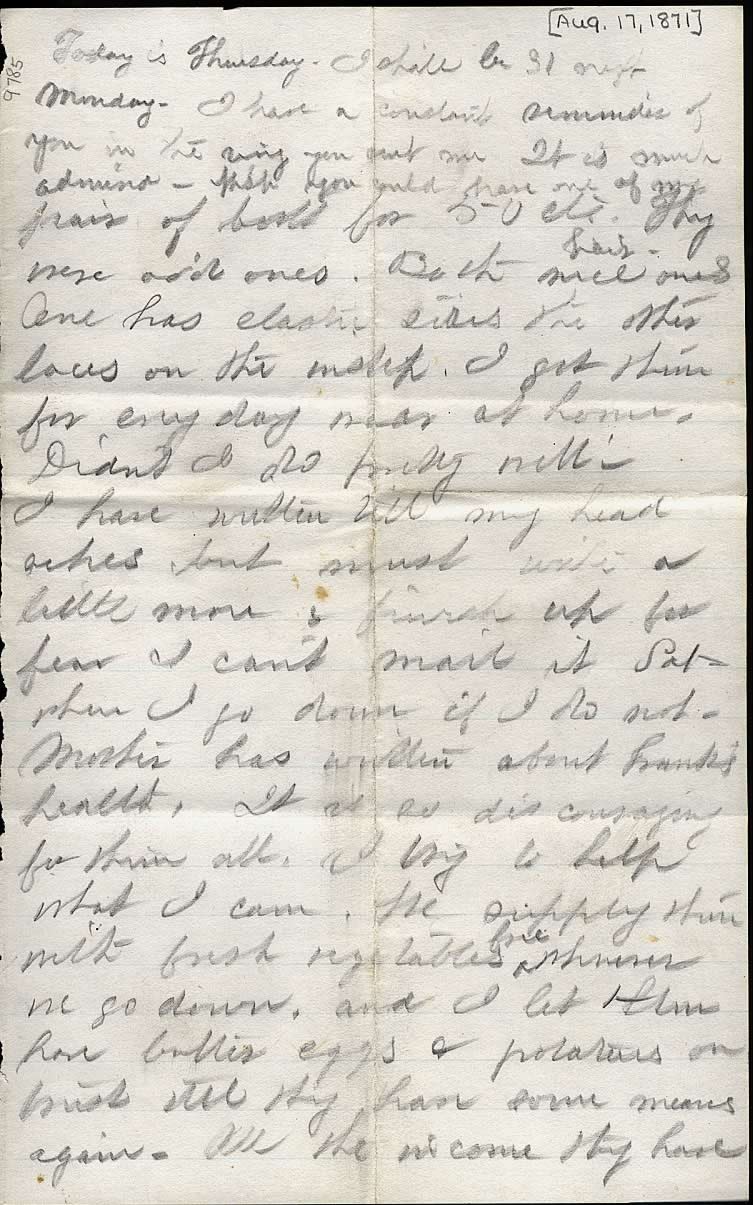 [Aug. 17, 1871]
9785
Today is Thursday. I shall be 31 next
Monday. I have a constant reminder of
you in the ring you sent me It is much
admired - Wish you could have one of my
pair of boots for 50 cts. They
were odd ones. Both nice ones
pair.
One has elastic sides the other
laces on the instep. I got them
for every day wear at home.
Didn't I do pretty well?
I have written till my head
aches but must write a
little more & finish up for
fear I can't mail it Sat-
when I go down if I do not-
Mother has written about Frank's
health. It is so discouraging
for them all. I try to help
what I can. We supply them
with fresh vegetables free whenever
we go down. and I let them
have butter eggs & potatoes on
trust till they have some means
again - All the income they have